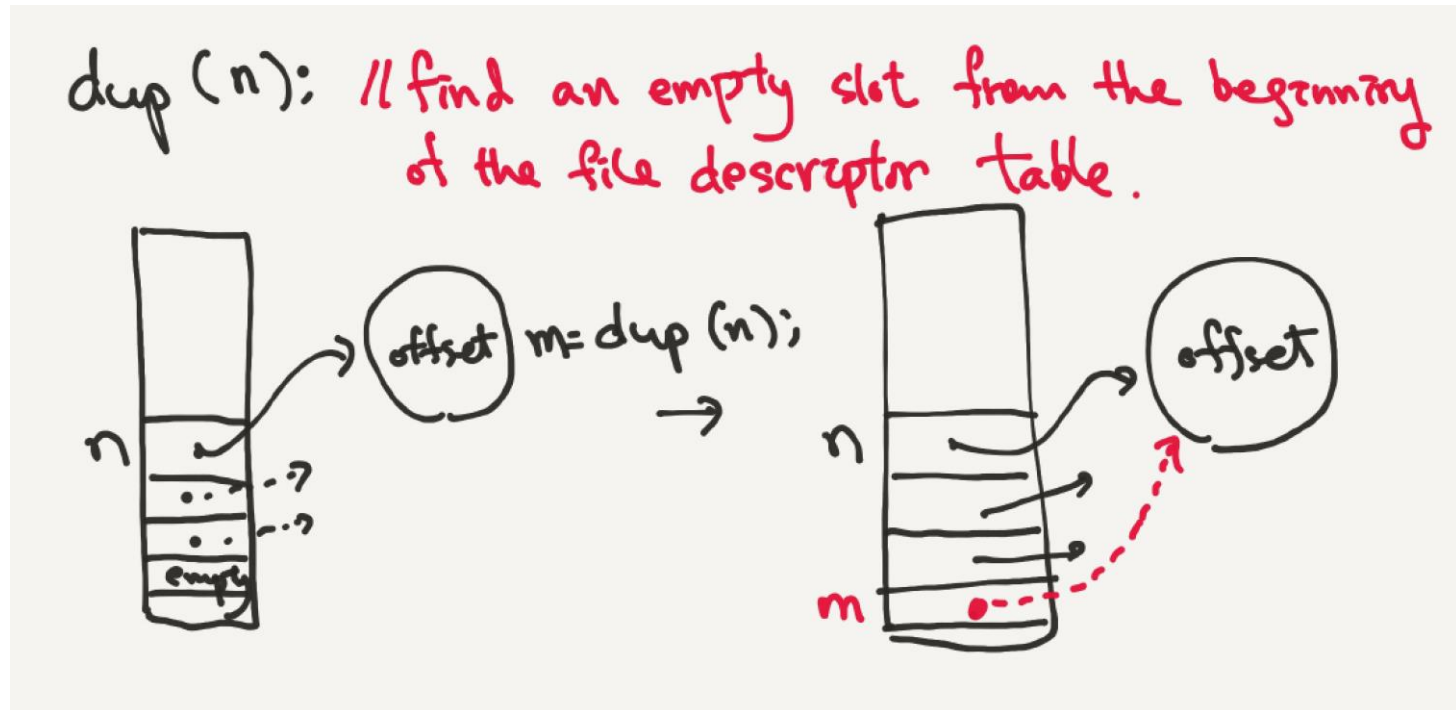 dup (n): // find an empty slot from the beginning
of the file descriptor table.
offset
m= dup (n);
offset
n
n
empty
m